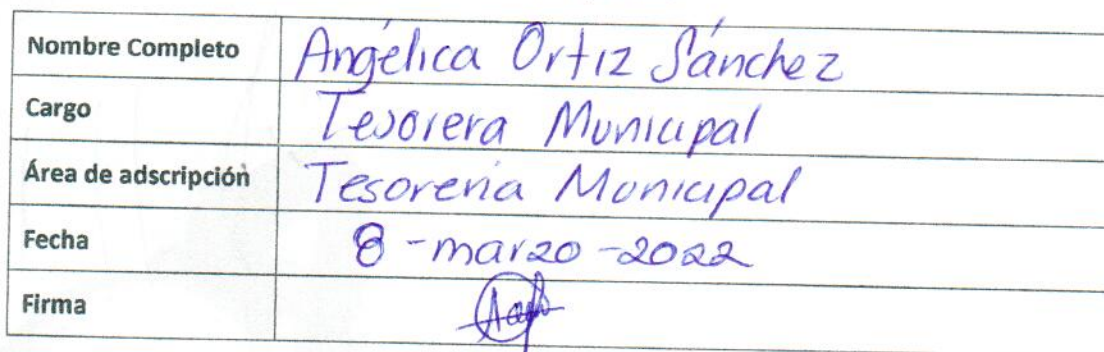 Nombre Completo Angélica Ortiz Sánchez
Cargo Tesorera Municipal
Área de adscripción Tesorería Municipal
Fecha 8-marzo-2022
Firma